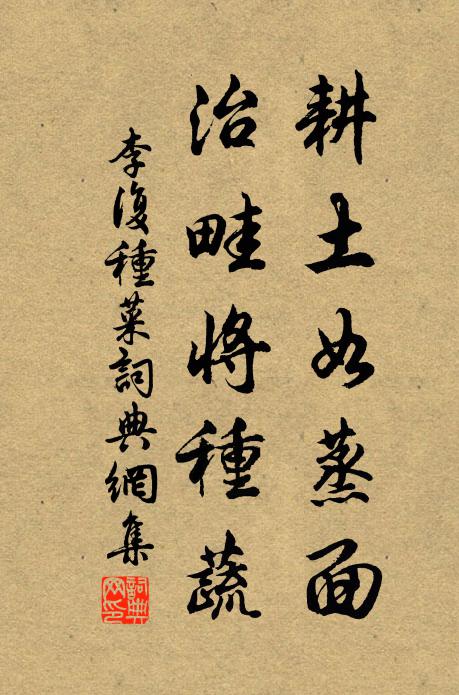 耕土如蒸面
治畦將種蔬
李復種菜詞典網集
詞典網印